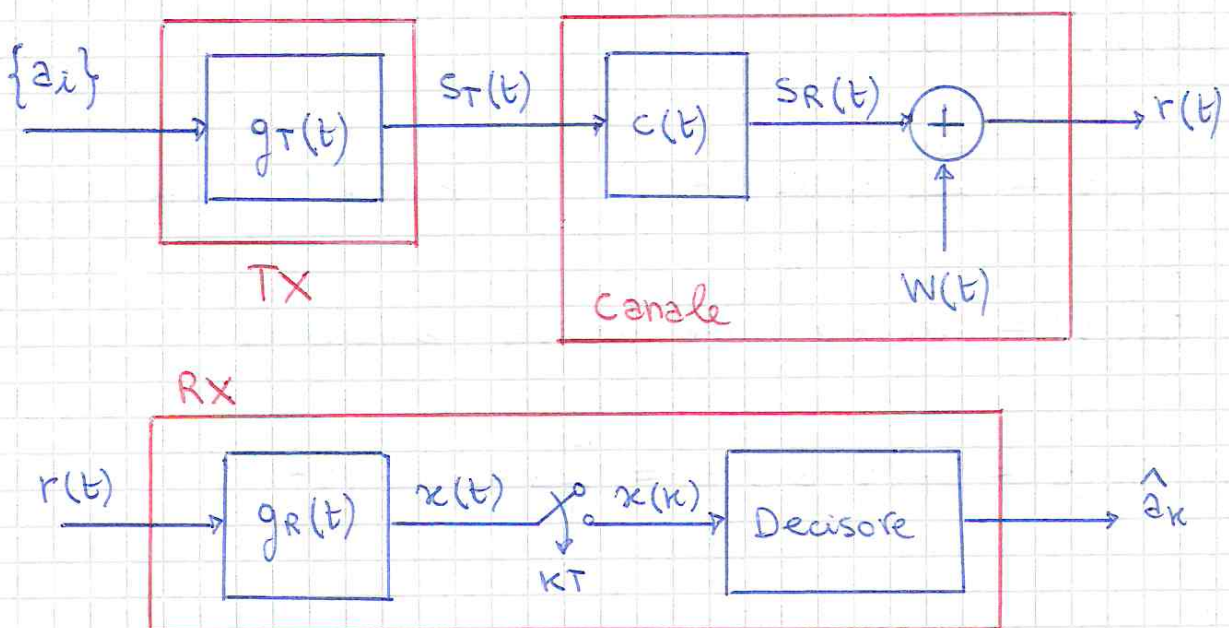 {a_i}
g_T(t)
S_T(t)
c(t)
S_R(t)
+
r(t)
TX
W(t)
Canale
RX
r(t)
g_R(t)
x(t)
x(k)
Decisore
â_k
KT